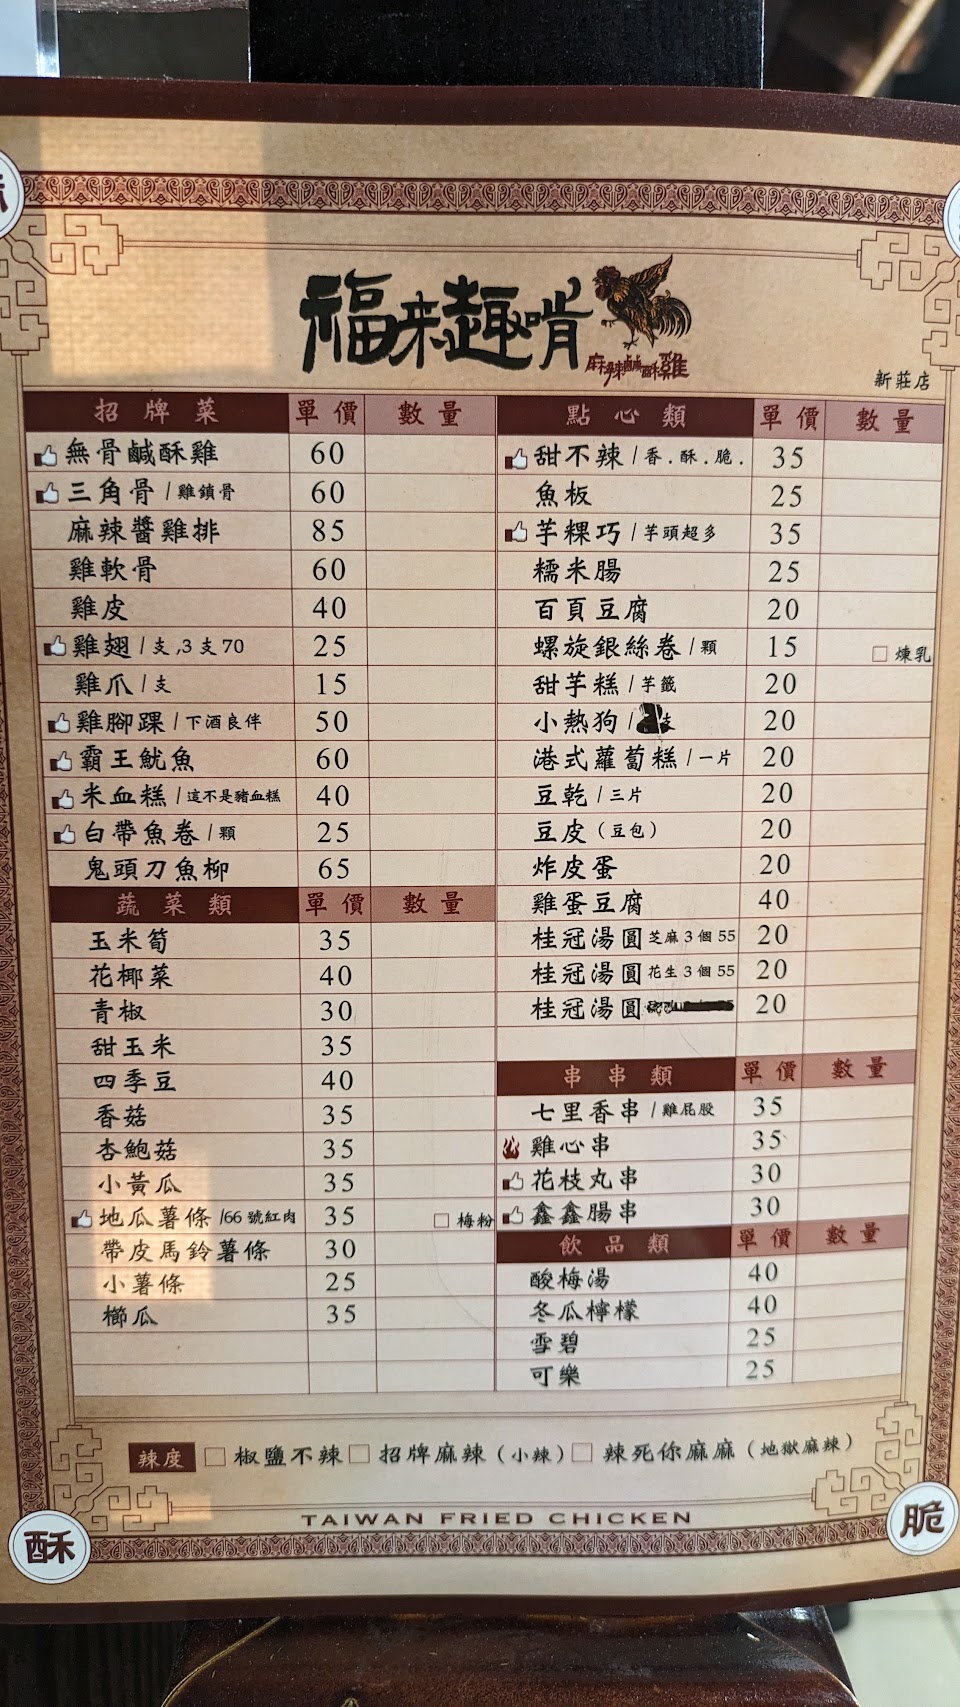 福来趣啃
麻辣鹹酥雞
新莊店
招牌菜 單價 數量
無骨鹹酥雞 60
三角骨 / 雞鎖骨 60
麻辣醬雞排 85
雞軟骨 60
雞皮 40
雞翅 / 支 ,3 支 70 25
雞爪 / 支 15
雞腳踝 / 下酒良伴 50
霸王魷魚 60
米血糕 / 這不是豬血糕 40
白帶魚卷 / 顆 25
鬼頭刀魚柳 65
蔬菜類 單價 數量
玉米筍 35
花椰菜 40
青椒 30
甜玉米 35
四季豆 40
香菇 35
杏鮑菇 35
小黃瓜 35
地瓜薯條 /66 號紅肉 35 □ 梅粉
帶皮馬鈴薯條 30
小薯條 25
櫛瓜 35
點心類 單價 數量
甜不辣 / 香 . 酥 . 脆 . 35
魚板 25
芋粿巧 / 芋頭超多 35
糯米腸 25
百頁豆腐 20
螺旋銀絲卷 / 顆 15 □ 煉乳
甜芋糕 / 芋籤 20
小熱狗 / 支 20
港式蘿蔔糕 / 一片 20
豆乾 / 三片 20
豆皮 (豆包) 20
炸皮蛋 20
雞蛋豆腐 40
桂冠湯圓 芝麻 3 個 55 20
桂冠湯圓 花生 3 個 55 20
桂冠湯圓 20
串串類 單價 數量
七里香串 / 雞屁股 35
雞心串 35
花枝丸串 30
鑫鑫腸串 30
飲品類 單價 數量
酸梅湯 40
冬瓜檸檬 40
雪碧 25
可樂 25
辣度 □ 椒鹽不辣 □ 招牌麻辣 (小辣) □ 辣死你麻麻 (地獄麻辣)
TAIWAN FRIED CHICKEN
酥
脆